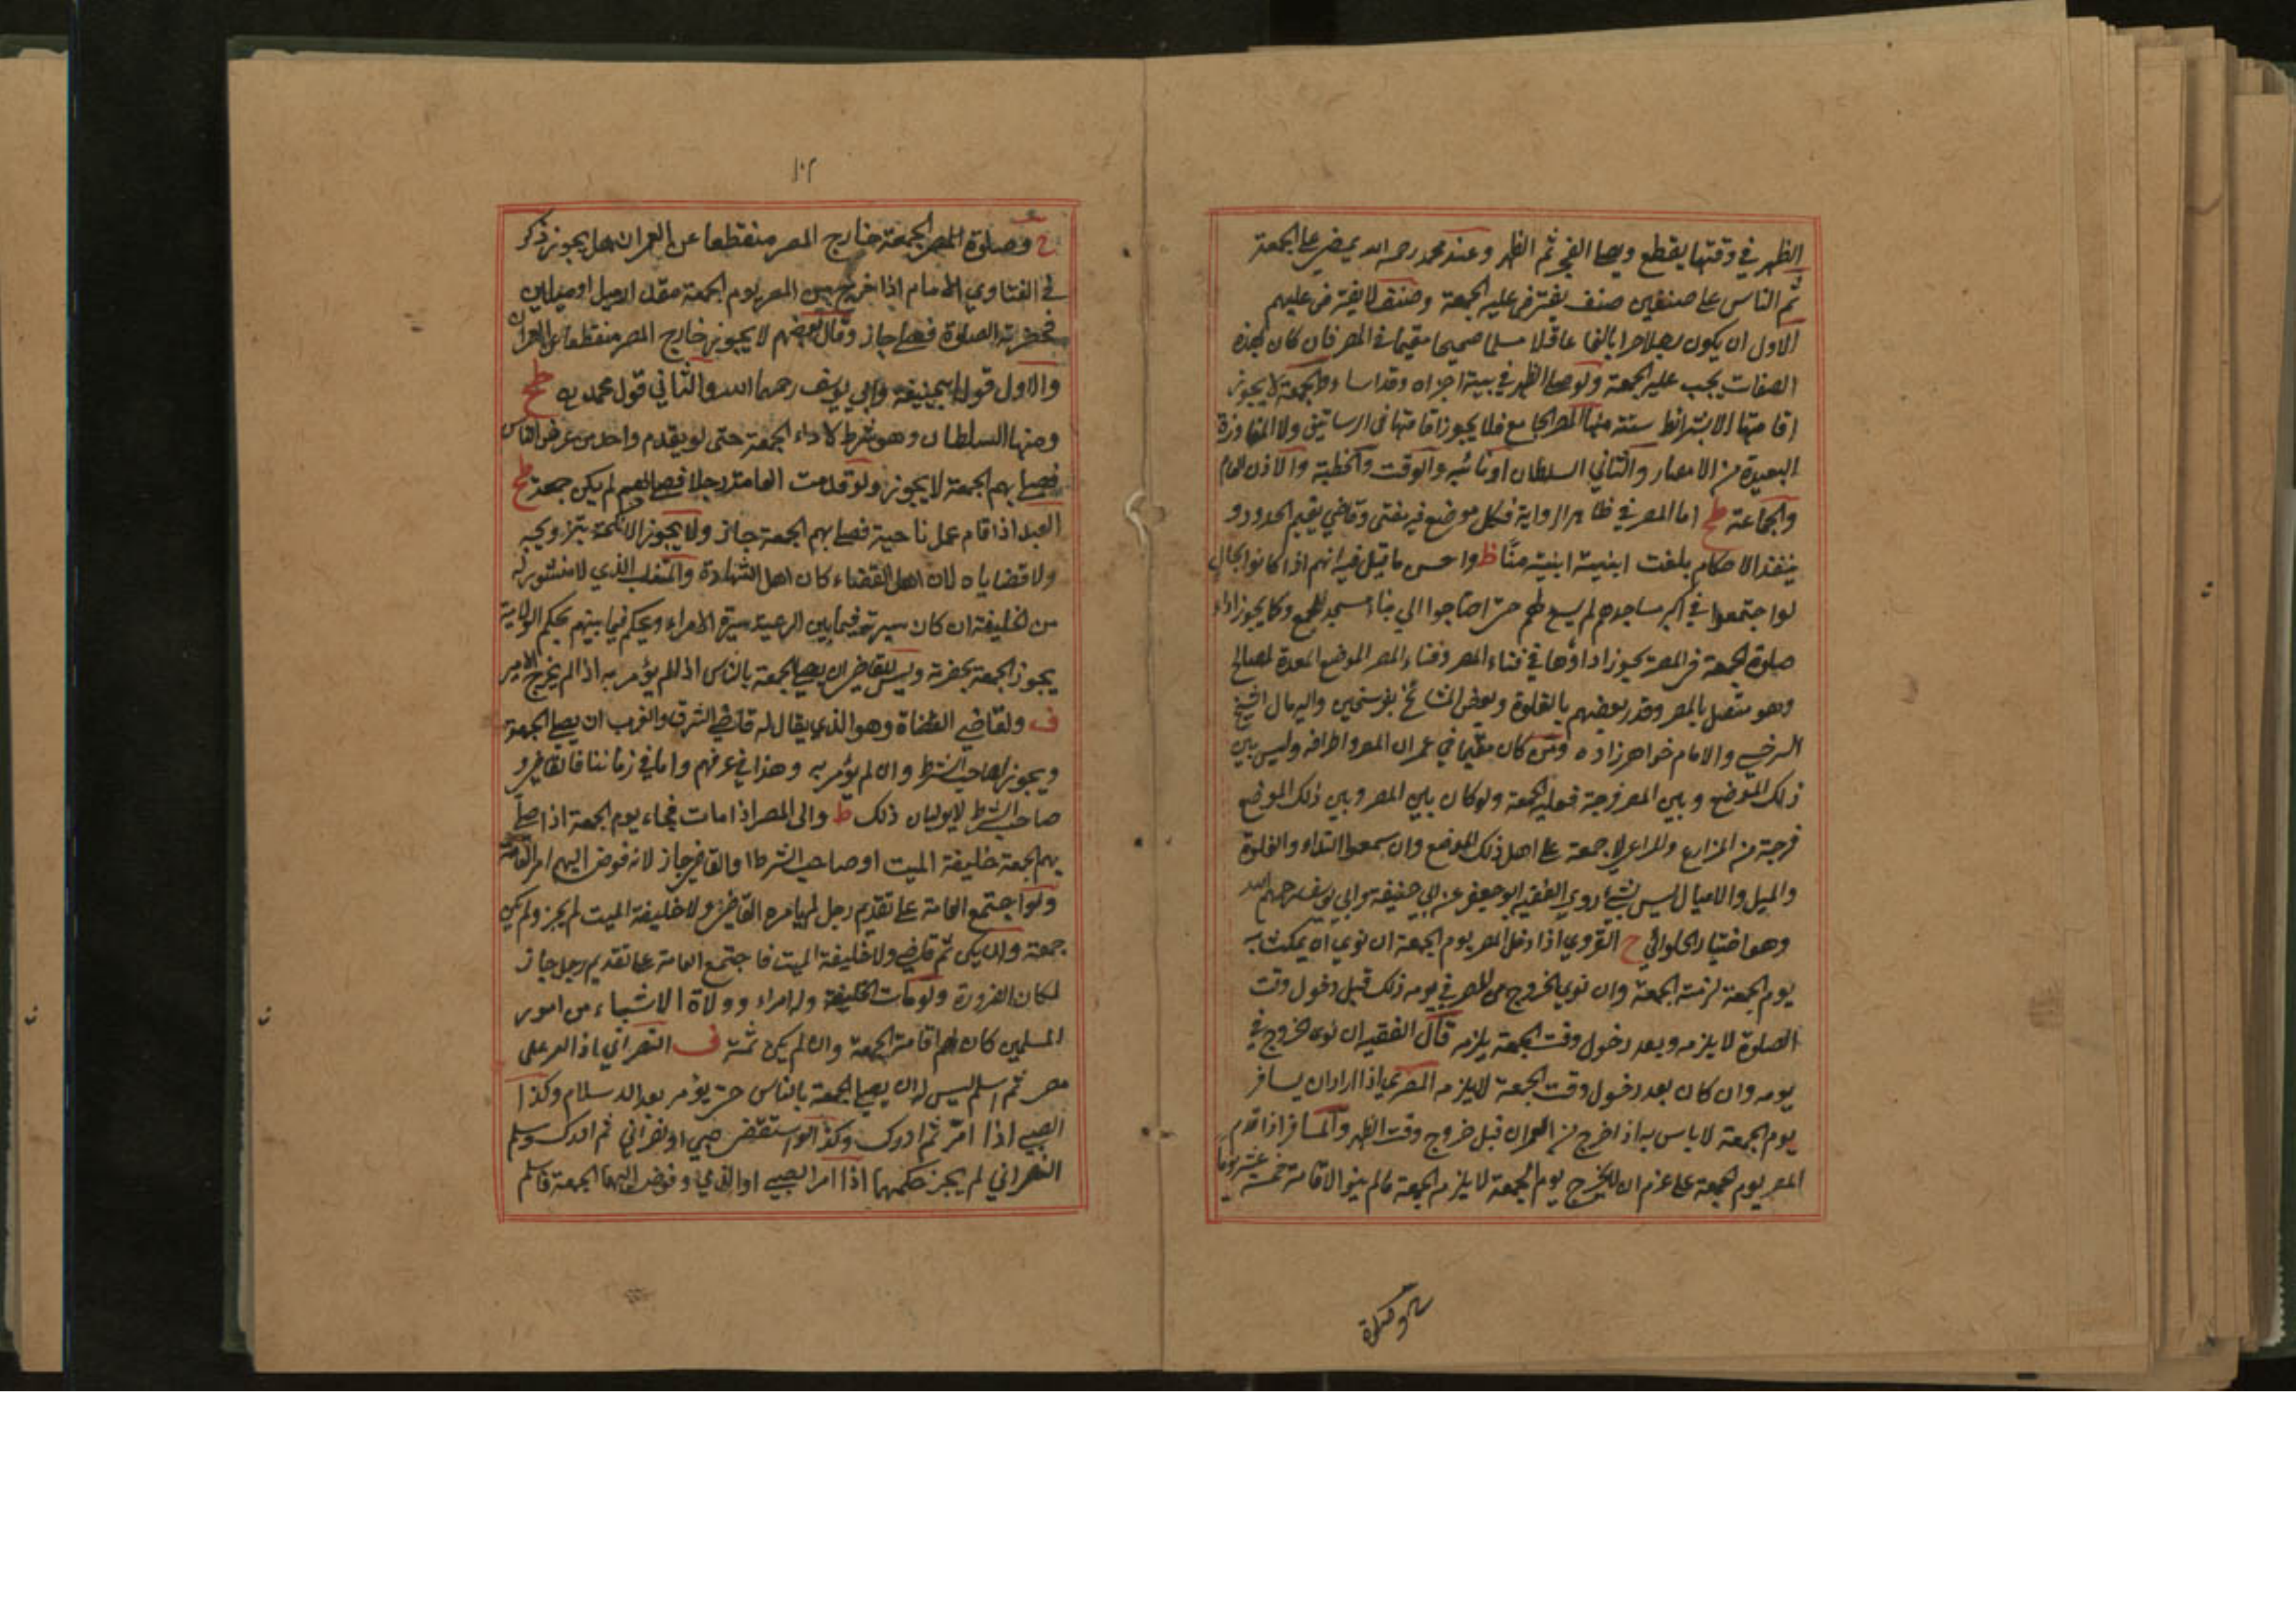 الظهر في وقتها يقطع ويصلي الفجر ثم الظهر وعند محمد رحمه الله يمضي على الجمعة
ثم الناس على صنفين صنف يفترض عليه الجمعة وصنف لا يفترض عليهم
الاول ان يكون رجلا حرا بالغا عاقلا مسلما صحيحا مقيما في المصر فان كان بهذه
الصفات يجب عليه الجمعة ولو صلى الظهر في بيته اجزاه وقد اساء والجمعة لا يجوز
اقامتها الا بشرائط ستة منها المصر الجامع فلا يجوز اقامتها في الرساتيق ولا المفاوزة
البعيدة من الامصار والثاني السلطان او نائبه والوقت والخطبة والاذن العام
والجماعة طح اما المصر في ظاهر الرواية فكل موضع فيه مفتى وقاضي يقيم الحدود و
ينفذ الاحكام بلغت ابنيته ابنية منا ظ واحسن ما قيل فيه انهم اذا كانوا بحال
لو اجتمعوا في اكبر مساجدهم لم يسعهم حتى احتاجوا الي بناء مسجد الجمع وكما يجوز اداء
صلوة الجمعة في المصر يجوز اداؤها في فناء المصر وفناء المصر الموضع المعدة لمصالح
وهو متصل بالمصر وقدر بعضهم بالغلوة وبعض المشائخ بفرسخين واليه مال الشيخ
السرخسي والامام خواهر زاده ومن كان مقيما في عمران المصر واطرافه وليس بين
ذلك الموضع وبين المصر فرجة فعليه الجمعة ولو كان بين المصر وبين ذلك الموضع
فرجة من المزارع والمراعي لا جمعة على اهل ذلك الموضع وان سمعوا النداء والغلوة
والميل والاميال ليس بشيء روي الفقيه ابو جعفر عن ابي حنيفة وابي يوسف رحمهم الله
وهو اختيار الحلوائي ح القروي اذا دخل المصر يوم الجمعة ان نوى ان يمكث به
يوم الجمعة لزمته الجمعة وان نوي الخروج من المصر في يومه ذلك قبل دخول وقت
الصلوة لا يلزمه وبعد دخول وقت الجمعة يلزمه قال الفقيه ان نوى الخروج في
يومه وان كان بعد دخول وقت الجمعة لا يلزمه المصري اذا اراد ان يسافر
يوم الجمعة لا باس به اذا خرج من العمران قبل خروج وقت الظهر والمسافر اذا قدم
المصر يوم الجمعة على عزم ان لا يخرج يوم الجمعة لا يلزمه الجمعة ما لم ينو الاقامة خمسة عشر يوما
وصلوة
١٠٢
ح وصلوة المصر الجمعة خارج المصر منقطعا عن العمران هل يجوز ذكر
في الفتاوي الامام اذا خرج من المصر يوم الجمعة مقدار ميل او ميلين
فحضرته الصلوة فصلى جاز وقال بعضهم لا يجوز خارج المصر منقطعا عن العمران
والاول قول ابي حنيفة وابي يوسف رحمهما الله والثاني قول محمد رح طح
ومنها السلطان وهو شرط لاداء الجمعة حتى لو يقدم واحد من عرض الناس
فصلى بهم الجمعة لا يجوز ولو قدمت العامة رجلا فصلى بهم لم يكن جمعة طح
العبد اذا قام عمل ناحية فصلى بهم الجمعة جاز ولا يجوز الانكحة بتزويجه
ولا قضاياه لان اهل القضاء كان اهل الشهادة والمتغلب الذي لا منشور له
من الخليفة ان كان سيرته فيما بين الرعية سيرة الامراء ويحكم فيما بينهم بحكم الولاية
يجوز الجمعة بحضرته وليس للقاضي ان يصلي الجمعة بالناس اذا لم يؤمر به اذا لم يخرج الامير
ف ولقاضي القضاة وهو الذي يقال له قاضي الشرق والغرب ان يصلي الجمعة
ويجوز لصاحب الشرط وان لم يؤمر به وهذا في عرفهم واما في زماننا فالقاضي و
صاحب الشرط لا يوليان ذلك ط والى المصر اذا مات فجاء يوم الجمعة اذا صلى
بهم الجمعة خليفة الميت او صاحب الشرط او القاضي جاز لانه فوض اليهم امر العامة
ولو اجتمع العامة على تقديم رجل لم يامره القاضي ولا خليفة الميت لم يجز ولم يكن
جمعة وان لم يكن ثم قاضي ولا خليفة الميت فاجتمع العامة على تقديم رجل جاز
لمكان الضرورة ولو مات الخليفة وله امراء وولاة الاشياء من امور
المسلمين كان لهم اقامة الجمعة وان لم يكن ثمة ف النصراني اذا امر على
مصر ثم اسلم ليس له ان يصلي الجمعة بالناس حتى يؤمر بعد الاسلام وكذا
الصبي اذا امر ثم ادرك وكذا لو استقضى صبي او نصراني ثم ادرك وسلم
النصراني لم يجز حكمهما اذا امر الصبي او الذمي وفوض اليهما الجمعة فاسلم